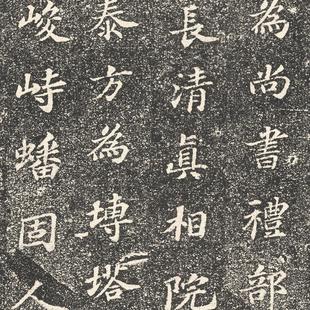 為尚書禮部
長清真相院
泰方為塼塔
峻峙蟠固人